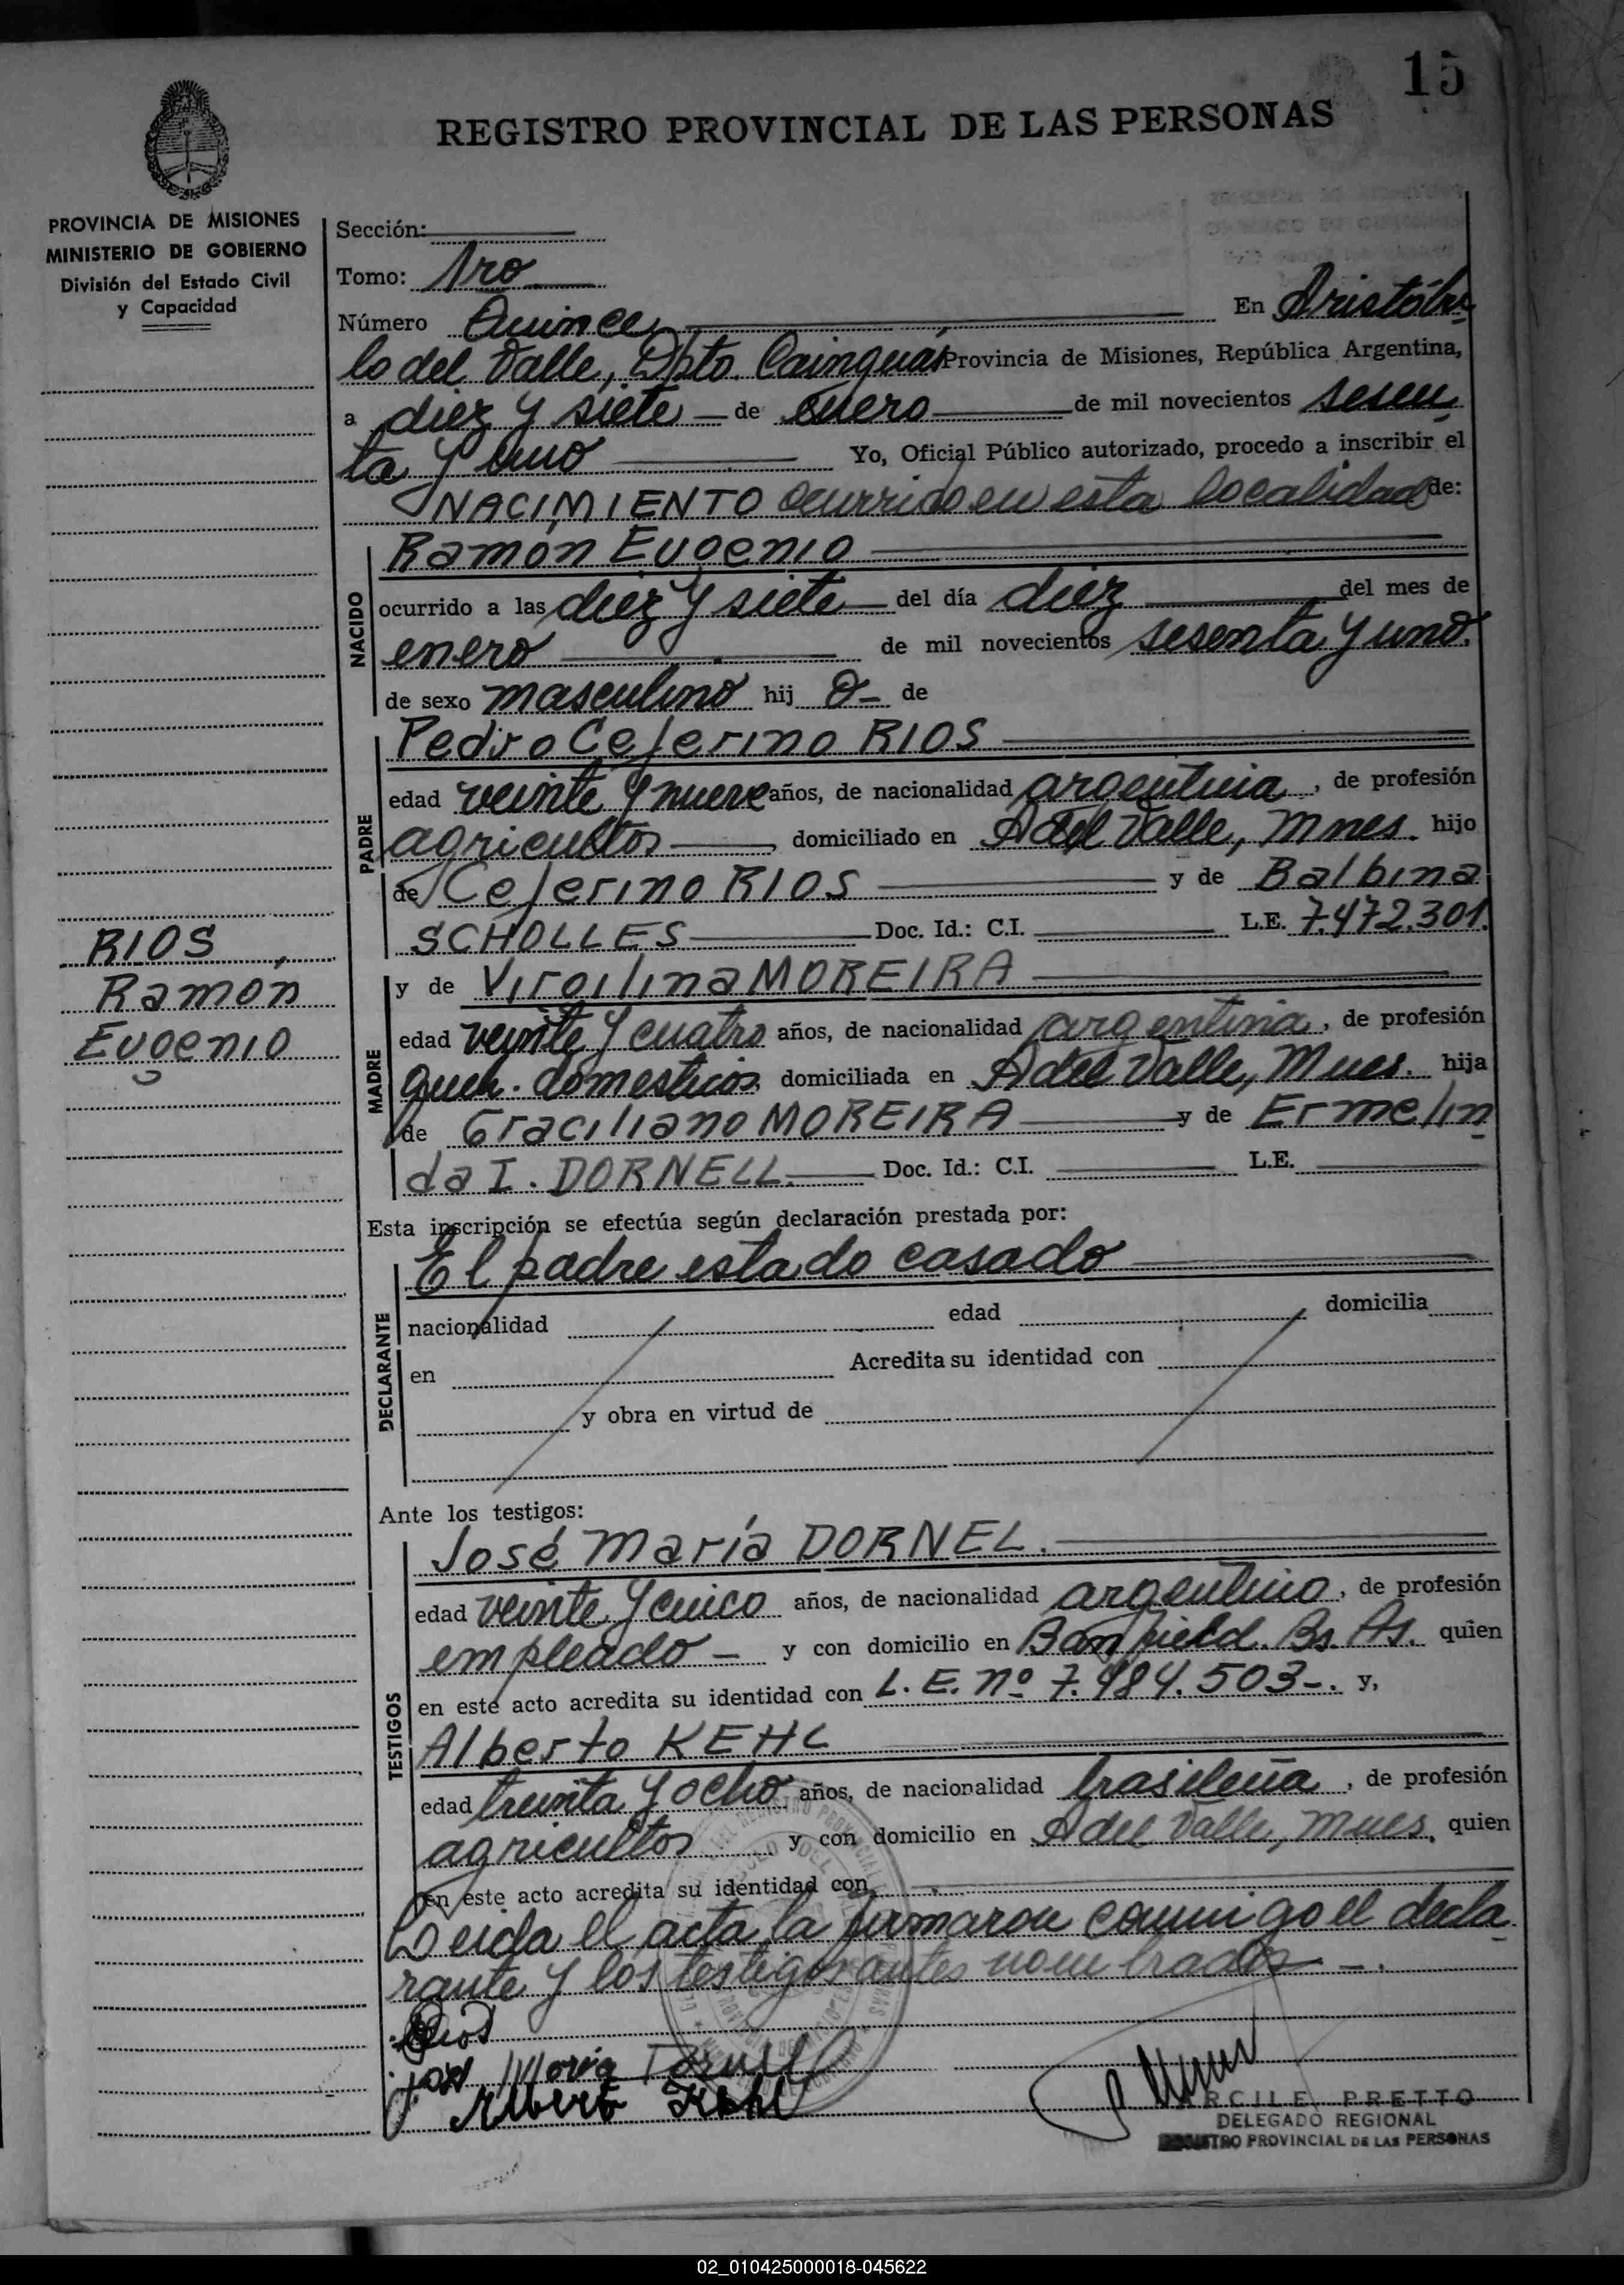 15
REGISTRO PROVINCIAL DE LAS PERSONAS
PROVINCIA DE MISIONES
MINISTERIO DE GOBIERNO
División del Estado Civil
y Capacidad
Sección:
Tomo: 1ro
Número Quince En Aristóbu-
lo del Valle, Dpto. Cainguás Provincia de Misiones, República Argentina,
a diez y siete de enero de mil novecientos sesen
ta y uno Yo, Oficial Público autorizado, procedo a inscribir el
NACIMIENTO ocurrido en esta localidad de:
NACIDO
Ramón Eugenio
ocurrido a las diez y siete del día diez del mes de
enero de mil novecientos sesenta y uno.
de sexo masculino hij o de
PADRE
Pedro Ceferino RIOS
edad veinte y nueve años, de nacionalidad argentina, de profesión
agricultor domiciliado en A del Valle, Mnes. hijo
de Ceferino RIOS y de Balbina
SCHOLLES Doc. Id.: C.I. L.E. 7.472.301.
RIOS,
Ramón
Eugenio
MADRE
y de Virgilina MOREIRA
edad veinte y cuatro años, de nacionalidad argentina, de profesión
queh. domesticos domiciliada en A del Valle, Mnes. hija
de Graciliano MOREIRA y de Ermelin
da I. DORNELL. Doc. Id.: C.I. L.E.
Esta inscripción se efectúa según declaración prestada por:
DECLARANTE
El padre estado casado
nacionalidad edad domicilia
en Acredita su identidad con
y obra en virtud de
Ante los testigos:
TESTIGOS
José María DORNEL.
edad veinte y cinco años, de nacionalidad argentino, de profesión
empleado y con domicilio en Banfield. Bs. As. quien
en este acto acredita su identidad con L.E. nº 7.484.503-. y,
Alberto KEHL
edad treinta y ocho años, de nacionalidad brasileña, de profesión
agricultor y con domicilio en A del Valle, Mnes. quien
en este acto acredita su identidad con
Leida el acta la firmaron conmigo el decla
rante y los testigos antes nombrados -.
Rios
José Maria Dornell
Albert Kehl
ARCILE PRETTO
DELEGADO REGIONAL
REGISTRO PROVINCIAL DE LAS PERSONAS
02_010425000018-045622